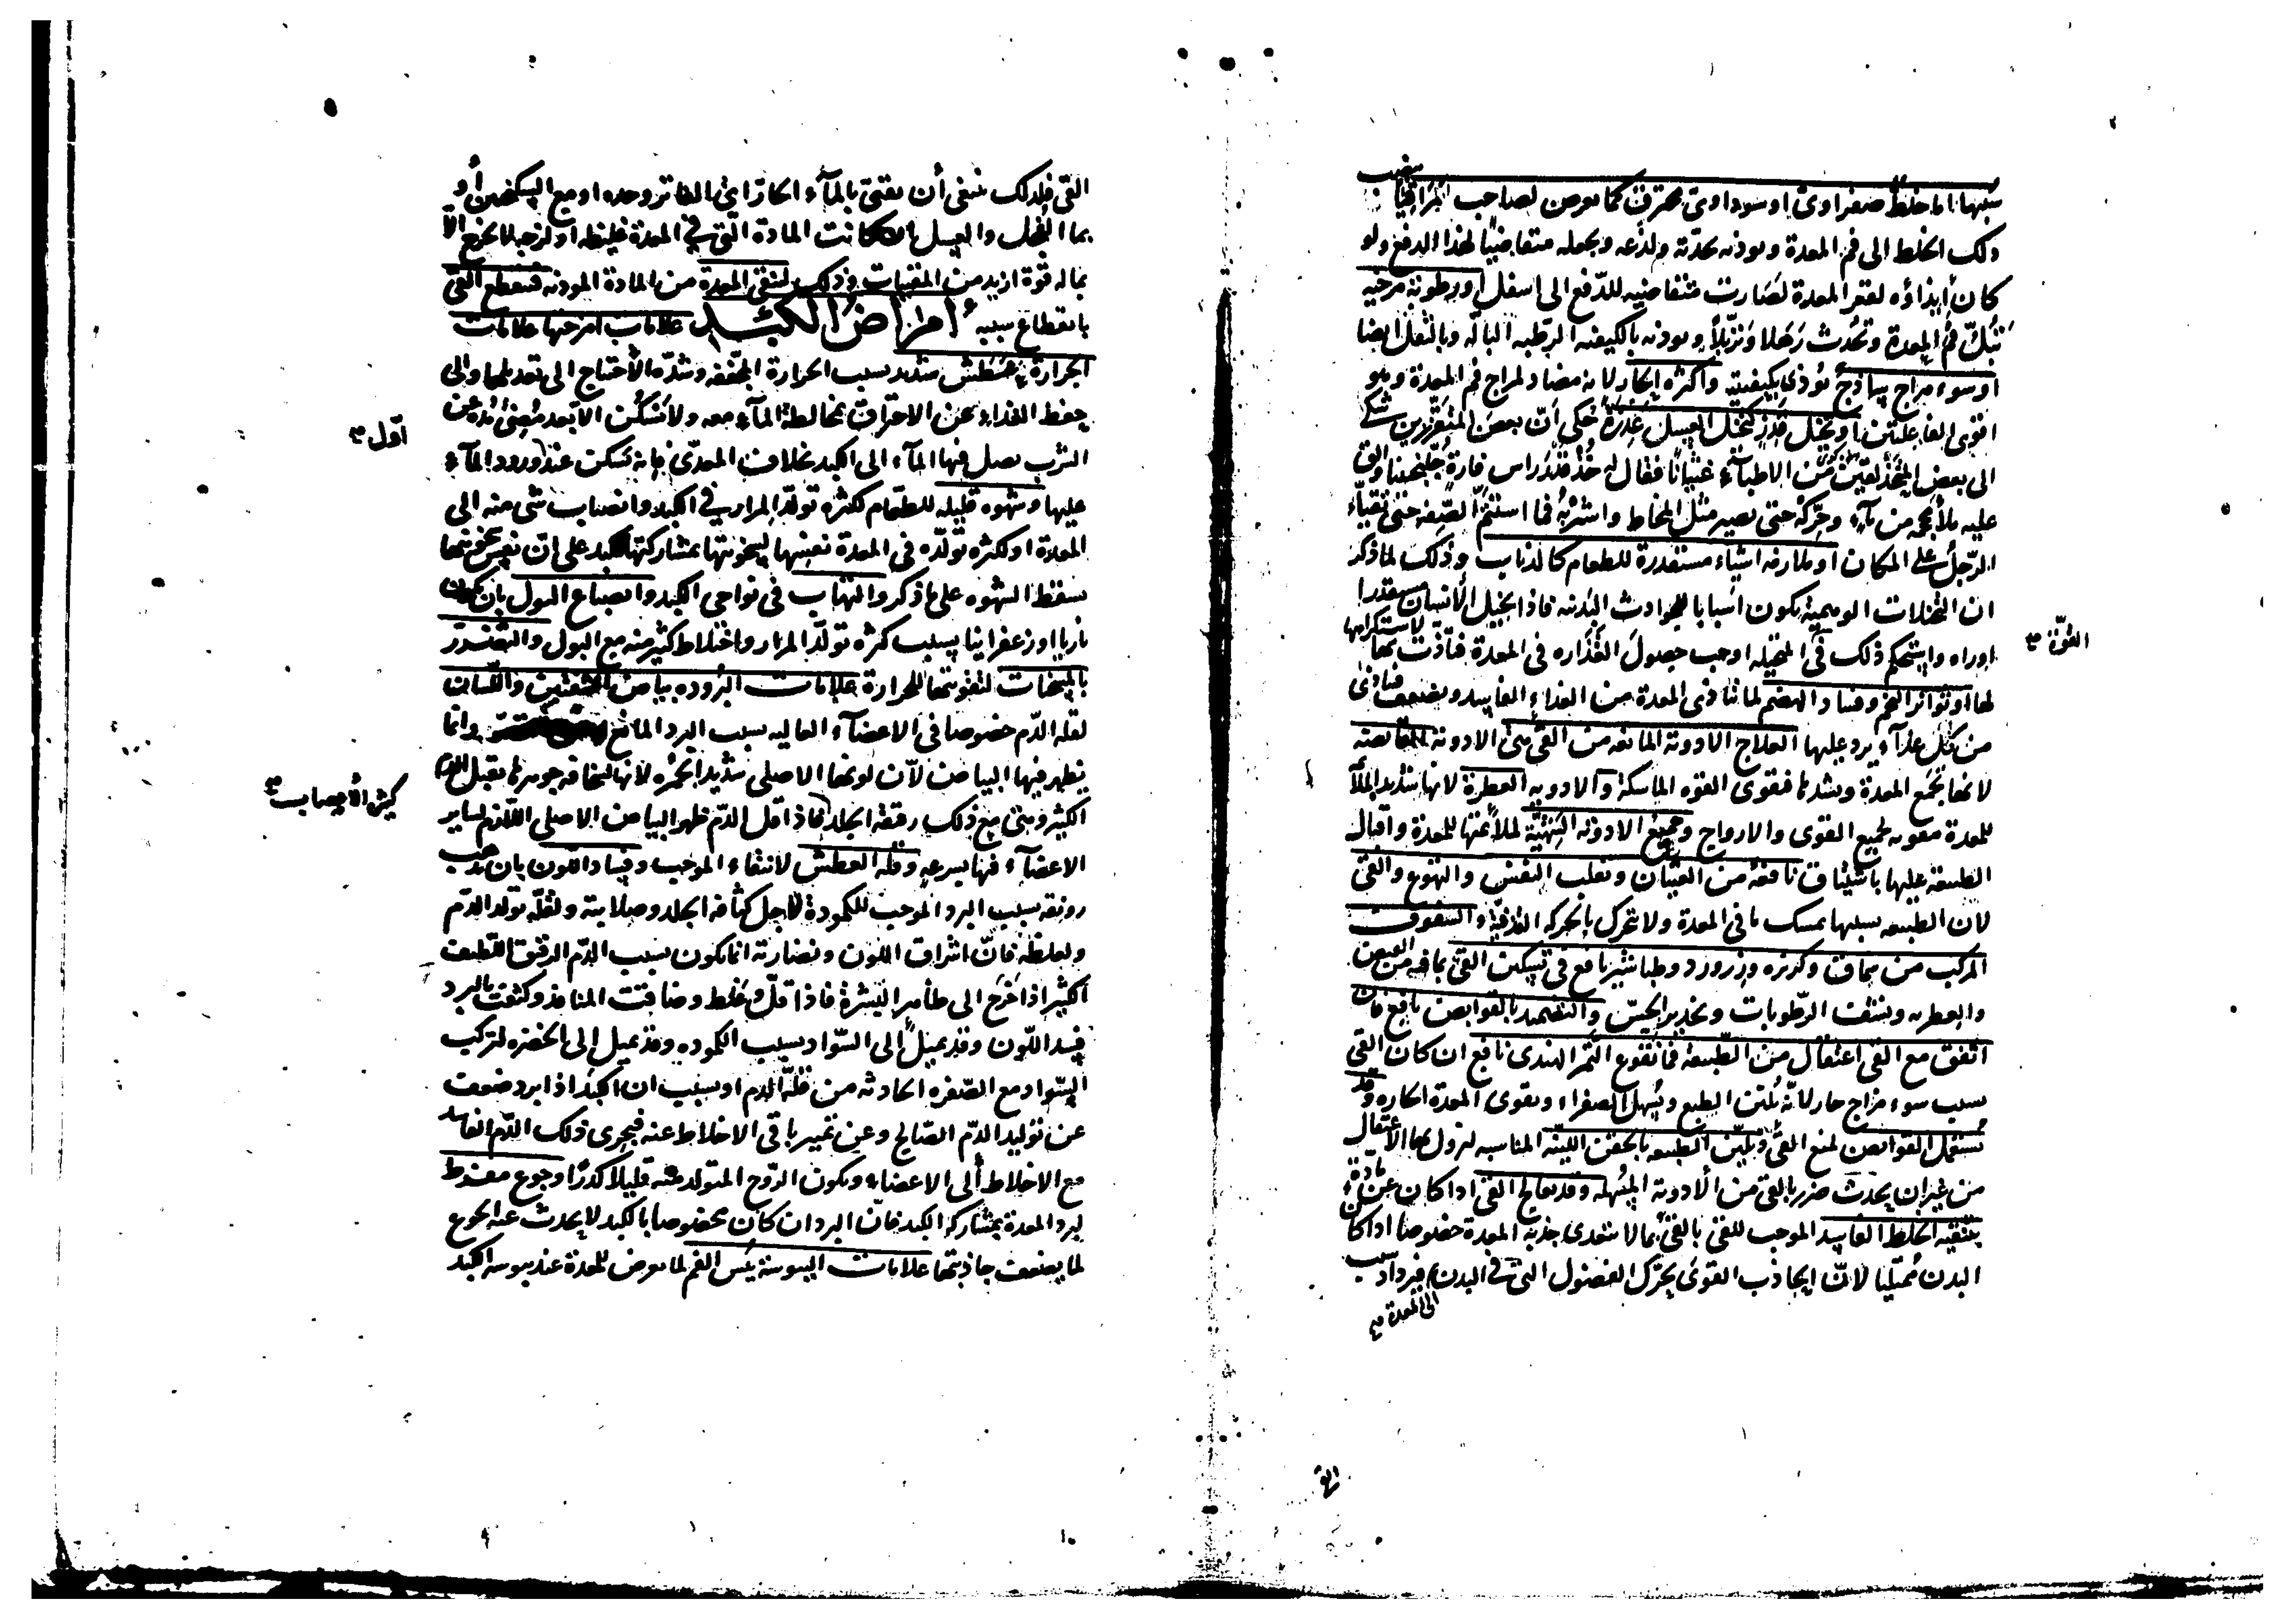 سببها اما خلط صفراوى او سوداوى محترق كما يعرض لصاحب المراقيا ينصب
ذلك الخلط الى فم المعدة ويوذيه بحدته ولذعه ويجعله متقاضيا لهذا الدفع ولو
كان ايذاؤه لقعر المعدة لصارت متقاضيه للدفع الى اسفل او رطوبة مرخيه
تبل فم المعدة وتحدث رهلا وتزبلا ويوذيه بالكيفيه الرطبه الباله وبالثقل ايضا
او سوء مزاج ساذج يوذى بكيفيته واكثره الحار لانه مضاد لمزاج فم المعدة وهو
اقوى الفاعلتين او تخيل قذر كتخيل العسل عذرة حكى ان بعض المتقززين شكى
الى بعض من الاطباء غثيانا فقال له خذ راس فارة والق
عليه ملأ من ماء وحركه حتى يصير مثل المخاط واشربه فما استتم الصفه حتى تقيأ
الرجل على المكان او ملازمه اشياء مستقذرة للطعام كالذباب وذلك لما ذكر
ان التخيلات الوهميه يكون اسبابا للحوادث البدنيه فاذا تخيل الانسان مستقذرا
او راه واستحكم ذلك فى المخيله اوجب حصول القذاره فى المعدة فتأذت بها لاستكراهها
القوة صح
لها او تواتر التخم وفساد الهضم لما يتاذى المعدة من الغذاء الفاسد ويضعف فيتاذى
من كل غذاء يرد عليها العلاج الادوية المانعه من القئ هى الادوية القابضه
لانها تجمع المعدة وتشدها فتقوى القوه الماسكة والادويه العطرة لانها شديد الملأمة
للمعدة مقويه لجميع القوى والارواح وجميع الادويه الشهيه لملأمتها للمعدة واقبال
الطبيعه عليها باشتياق نافعة من الغثيان وتقلب النفس والتهوع والقى
لان الطبيعه بسببها يمسك ما فى المعدة ولا تتحرك بالحركه القذفية والسفوف
المركب من سماق وكزبره وزرورد وطباشير نافع فى تسكين القئ بما فيه من القبض
والعطريه وتنشف الرطوبات وتخدير الحس والتضميد بالقوابض نافع فان
اتفق مع القى اعتقال من الطبيعه فماء نقوع التمر الهندى نافع ان كان القئ
بسبب سوء مزاج حار لانه يلين الطبع ويسهل الصفراء ويقوى المعدة الحاره وقد
يستعمل القوابض لمنع القئ وتليين الطبيعه بالحقن اللينه المناسبه لتزول بها الاعتقال
من غير ان يحدث ضرر بالقئ من الأدوية المسهله وقد يعالج القئ اذا كان عن مادة
بتنقيه الخلط الفاسد الموجب للقى بالقئ بما لا يتعدى جذبه المعدة خصوصا اذا كان
البدن ممتليا لان الجاذب القوى يحرك الفضول التى فى البدن فيزداد سبب
الى المعدة صح
القئ
القى فلذلك ينبغى أن يقيئ بالماء الحار اى الفاتر وحده او مع السكنجبين او
بماء الفجل والعسل ان كانت المادة التى فى المعدة غليظه او لزجه لا يخرج الا
بماله قوة ازيد من المقيات وذلك لتنقى المعدة من المادة الموذيه فينقطع القئ
بانقطاع سببه أمراض الكبد علامات امزجتها علامات
الحرارة عطش شديد بسبب الحرارة المجففه وشدة الاحتياج الى تعديلها والى
حفظ الغذاء عن الاحتراق بمخالطة الماء معه ولا يسكن الا بعد مضى مدة عن
اول صح
الشرب يصل فيها الماء الى الكبد بخلاف المعدى فانه يسكن عند ورود الماء
عليها وشهوه قليله للطعام لكثره تولد المرار فى الكبد وانصباب شئ منه الى
المعدة او لكثره تولده فى المعدة نفسها لسخونتها بمشاركتها للكبد على ان نفس سخونتها
يسقط الشهوه على ما ذكر والتهاب فى نواحى الكبد وانصباغ البول بان يكون
ناريا او زعفرانيا بسبب كثره تولد المرار واختلاط كثير منه مع البول والتضرر
بالمسخنات لتقويتها للحرارة علامات البرودة بياض الشفتين واللسان
لقله الدم خصوصا فى الاعضاء العاليه بسبب البرد المانع وانما
يظهر فيها البياض لان لونها الاصلى شديد الحمره لانها لسخافه جوهرها يقبل الدم
كثير الاعصاب صح
الكثير وهى مع ذلك رقيقه الجلد فاذا قل الدم ظهر البياض الاصلى اللازم لساير
الاعضاء فيها بسرعه وقله العطش لانتفاء الموجب وفساد اللون بان يذهب
رونقه بسبب البرد الموجب للكمودة لاجل كثافه الجلد وصلابته ولقله تولد الدم
ولغلظه فان اشراق اللون ونضارته انما يكون بسبب الدم الرقيق اللطيف
الكثير اذا خرج الى ظاهر البشرة فاذا قل وغلظ وضاقت المنافذ وكثفت بالبرد
فسد اللون وقد يميل الى السواد بسبب الكموده وقد يميل الى الخضره لتركب
السواد مع الصفره الحادثه من قلة الدم او بسبب ان الكبد اذا برد ضعف
عن توليد الدم الصالح وعن تمييز باقى الاخلاط عنه فيجرى ذلك الدم الفاسد
مع الاخلاط الى الاعضاء ويكون الروح المتولد منه قليلا كدرا وجوع مفرط
لبرد المعدة بمشاركه الكبد فان البرد ان كان مخصوصا بالكبد لا يحدث عنه الجوع
لما يضعف جاذبتها علامات اليبوسة يبس الفم لما يعرض للمعدة عند يبوسه الكبد